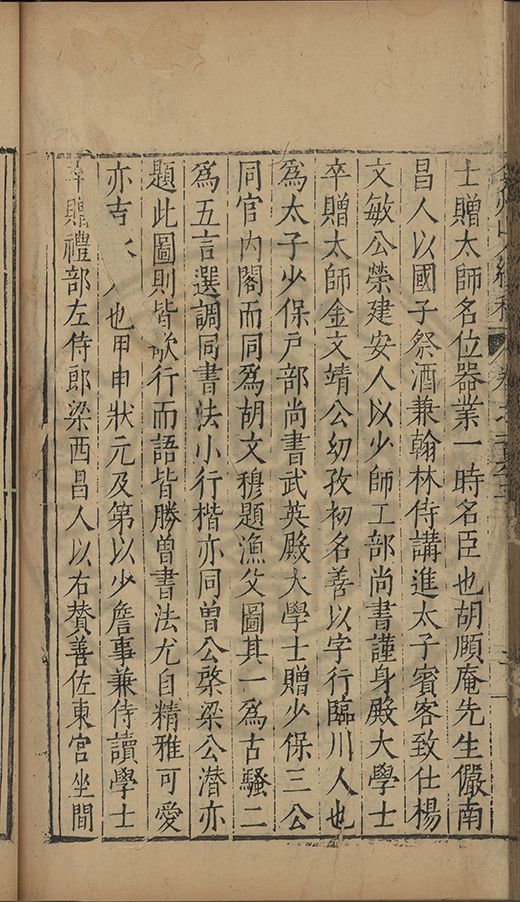 士贈太師名位器業一時名臣也胡頤庵先生儼南
昌人以國子祭酒兼翰林侍講進太子賓客致仕楊
文敏公榮建安人以少師工部尚書謹身殿大學士
卒贈太師金文靖公幼孜初名善以字行臨川人也
為太子少保戶部尚書武英殿大學士贈少保三公
同官內閣而同為胡文穆題漁父圖其一為古騷二
為五言選調同書法小行楷亦同曾公棨梁公潛亦
題此圖則皆歌行而語皆勝曾書法尤自精雅可愛
亦吉 人也甲申狀元及第以少詹事兼侍讀學士
卒贈禮部左侍郎梁西昌人以右贊善佐東宮坐間